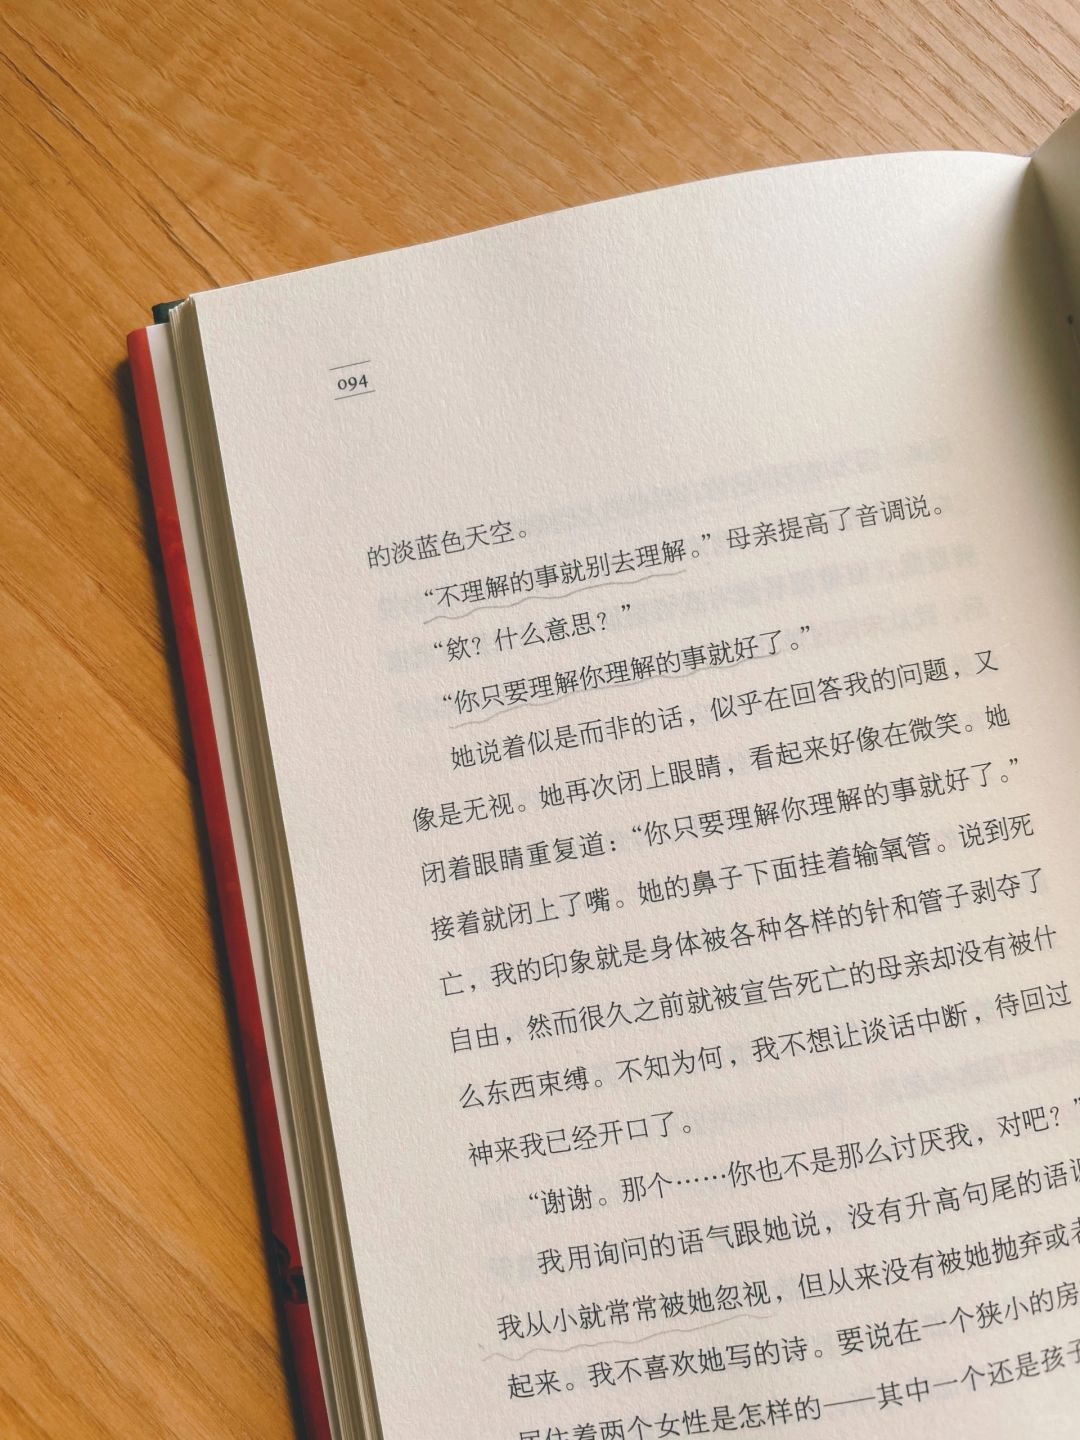 094
的淡蓝色天空。
“不理解的事就别去理解。”母亲提高了音调说。
“欸？什么意思？”
“你只要理解你理解的事就好了。”
她说着似是而非的话，似乎在回答我的问题，又
像是无视。她再次闭上眼睛，看起来好像在微笑。她
闭着眼睛重复道：“你只要理解你理解的事就好了。”
接着就闭上了嘴。她的鼻子下面挂着输氧管。说到死
亡，我的印象就是身体被各种各样的针和管子剥夺了
自由，然而很久之前就被宣告死亡的母亲却没有被什
么东西束缚。不知为何，我不想让谈话中断，待回过
神来我已经开口了。
“谢谢。那个……你也不是那么讨厌我，对吧？”
我用询问的语气跟她说，没有升高句尾的语调
我从小就常常被她忽视，但从来没有被她抛弃或者
起来。我不喜欢她写的诗。要说在一个狭小的房
居住着两个女性是怎样的——其中一个还是孩子